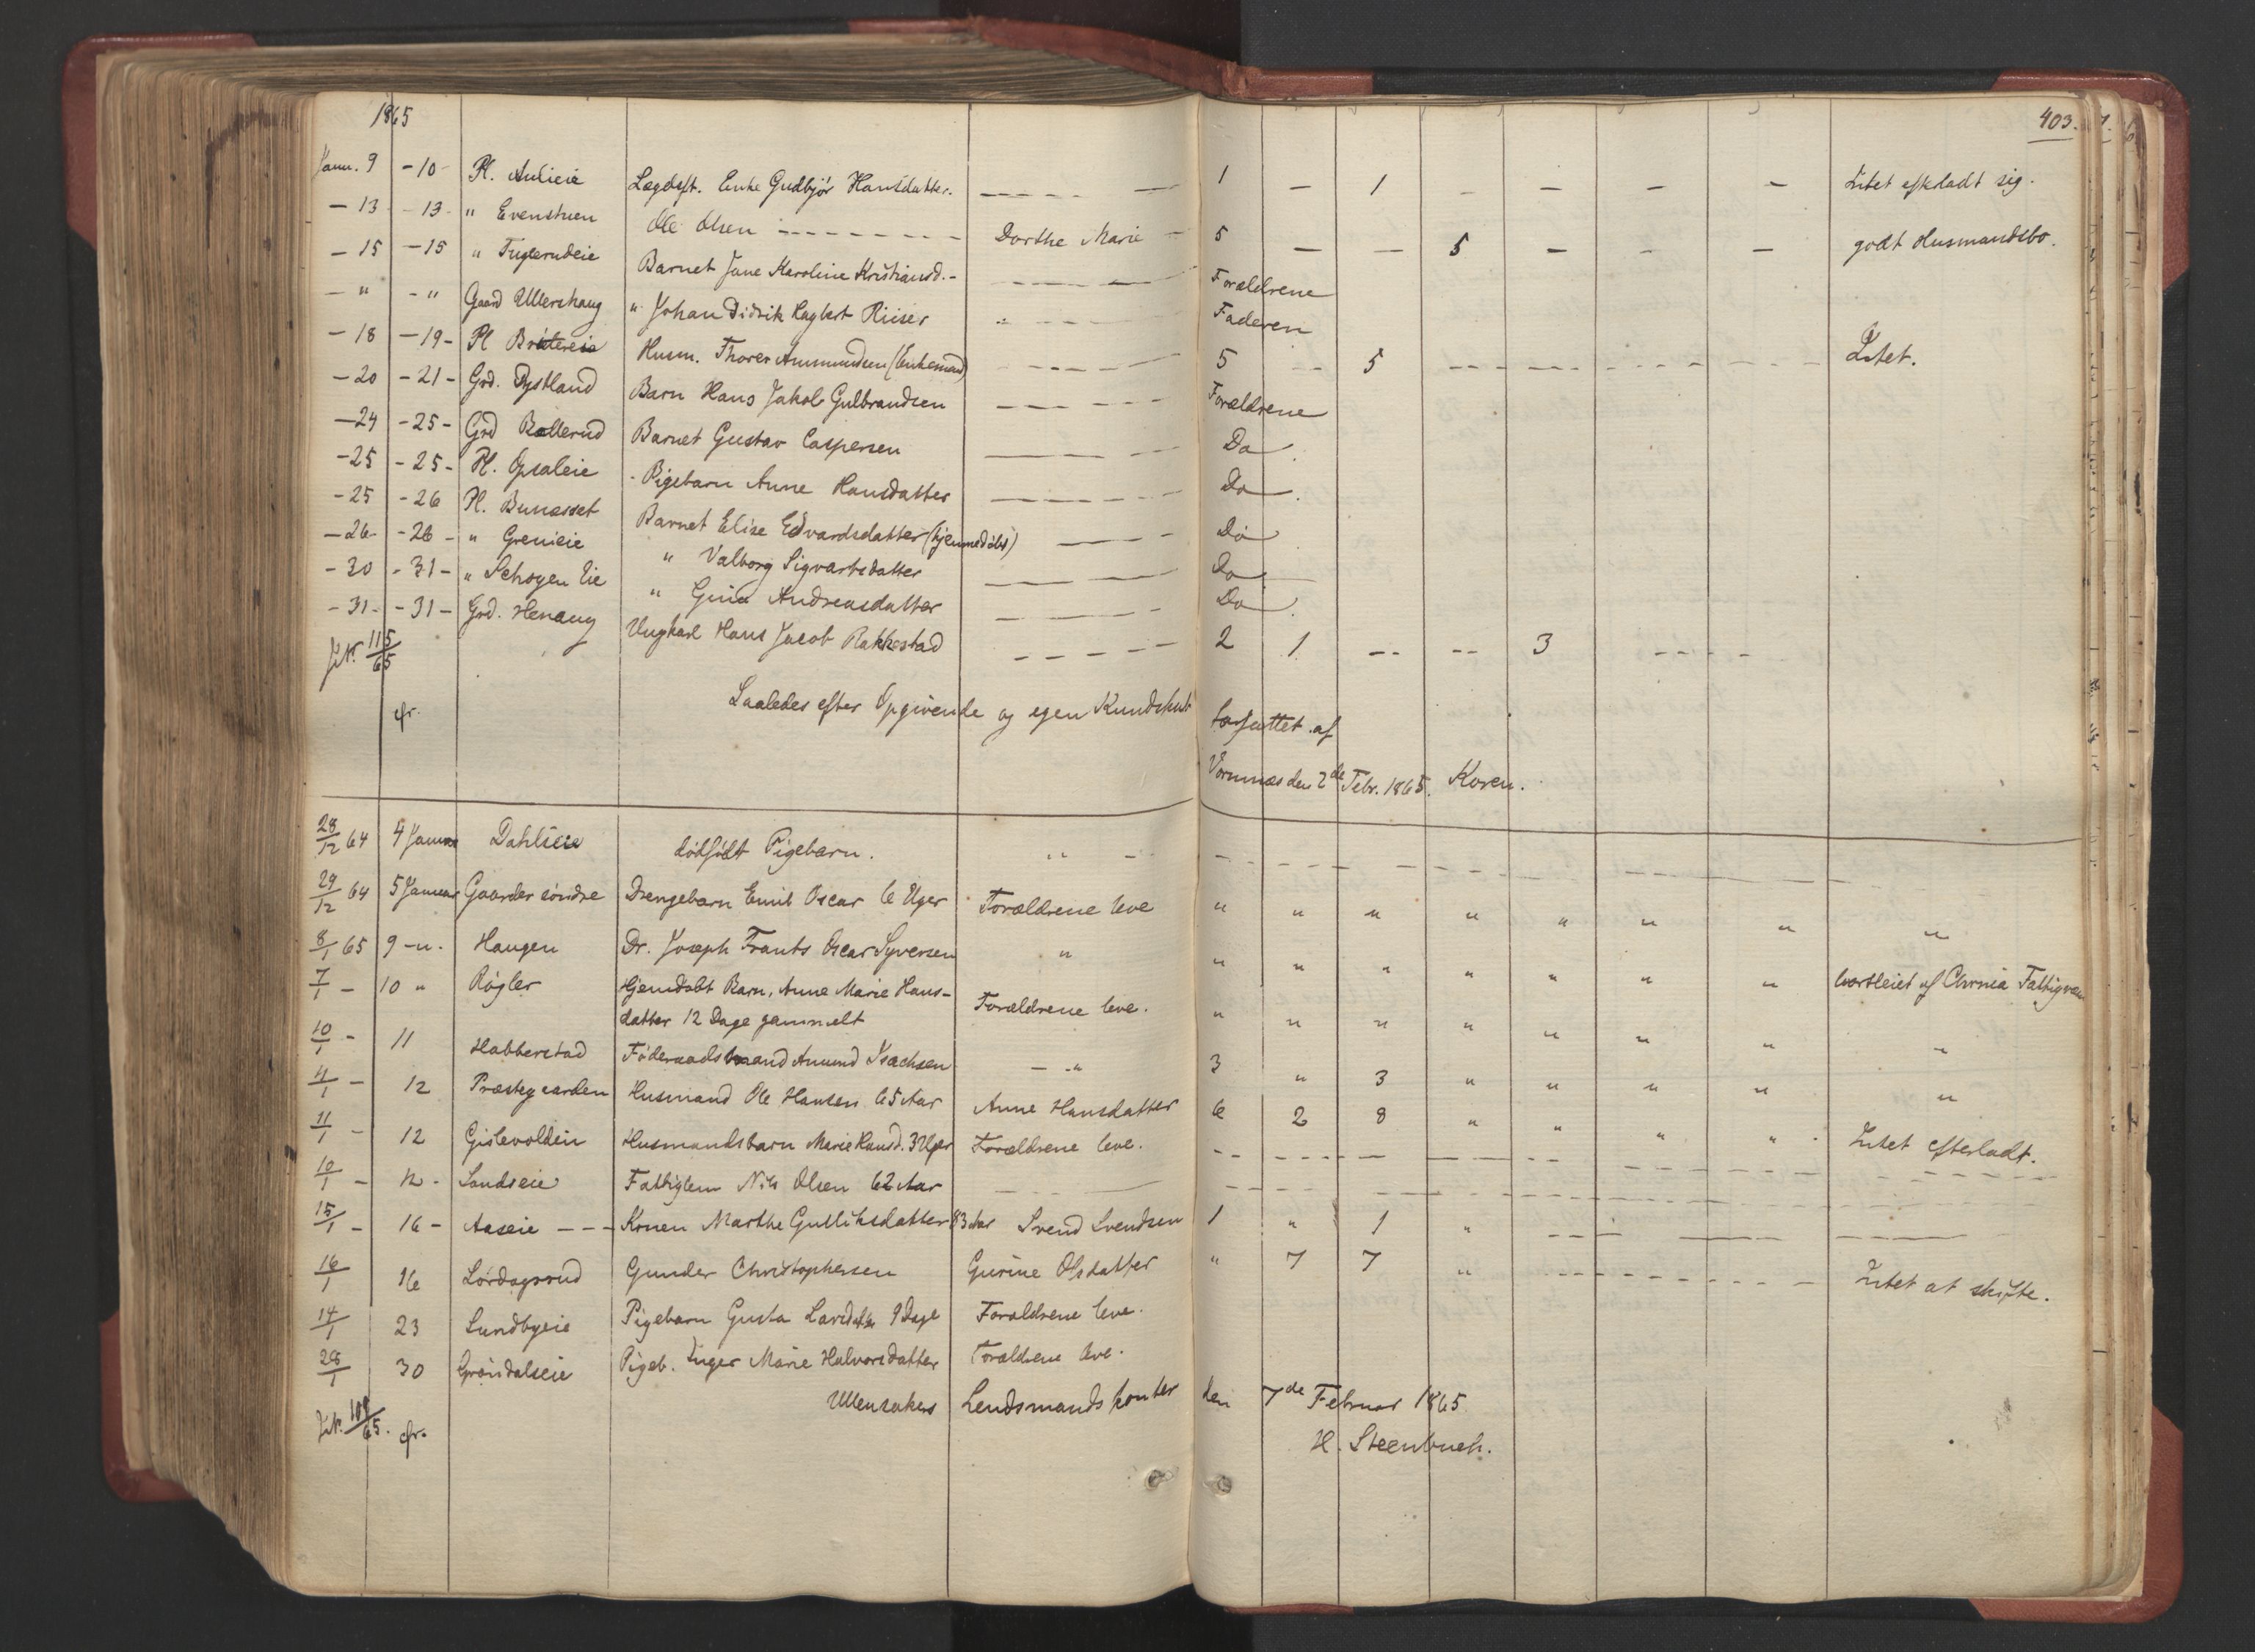 1865
403.
Janu. 9 - 10 - Pl. Aulieie Lægdsft. Enke Gudbjør Hansdatter. 1 — 1 - — — — Intet efterladt sig.
— 13 - 13 - " Evenstuen Ole Olsen Dorthe Marie - 5 — — 5 — - — godt Husmandsbo.
— 15 — 15 " Fuglerudeie Barnet Jane Karoline Kristiansd. - Forældrene
— " - " Gaard Ullershaug " Johan Didrik Ragbert Riiser Faderen
— 18 — 19 - Pl Husm. Thorer Ammundsen (Enkemand) 5 -- 5 Intet.
— 20 - 21 - Grd. Barn Hans Jakob Gulbrandsen Forældrene
— 24 - 25 - Grd Bøllerud Barnet Gustav Caspersen Do
- 25 - 25 - Pl. Opsaleie - Pigebarn Anne Hansdatter Do.
- 25 - 26 Pl. Bunæsset Barnet Elise Edvardsdatter (hjemmedøbt) Do
— 26 - - 26 - " Grenieie " Valborg Sigvartsdatter Do
- 30 - 31 - " Schøyen Eie " Gina Andreasdatter Do.
- 31 - - 31 - Grd. Henaug Ungkarl Hans Jacob Rakkestad 2 1 -- -- 3
JN. 115/65
cfr. Saaledes efter Opgivende og egen Kundskab forfattet af
Vormnæs den 2de Febr. 1865. Koren.
28/12 64 4 Januar Dahlseie dødfødt Pigebarn. "
29/12 64 5 Januar Gaarder søndre Drengebarn Emil Oscar 6 Uger Forældrene leve " " " " " " " "
8/1 65 9 -"- Haugen Dr. Joseph Frants Oscar Syversen " " " " " " " " bortleiet af Chrnia Fattigvæs
7/1 - 10 " Røgler Hjemdøbt Barn, Anne Marie Hans-
datter 12 Dage gammelt Forældrene leve. " " " " " " " "
10/1 - 11 Habberstad Føderaadsmand Amund Isachsen — " 3 " 3 " " " " "
11/1 - 12 Præstegaarden Husmand Ole Hansen 65 Aar Anne Hansdatter 6 2 8 " " " " Intet efterladt.
11/1 - 12 Gislevolden Husmandsbarn Marie Hansd. 3 Uger Forældrene leve.
10/1 - 12 - Sandseie Fattiglem Nils Olsen 62 Aar
15/1 - 16 - Aaseie --- Konen Marthe Gulliksdatter 83 Aar Svend Svendsen 1 " 1 "
16/1 16 Lørdagsrud Gunder Christophersen Gurine Olsdatter " 7 7 " Intet at skifte.
14/1 23 Sundbyeie Pigebarn Gusta Larsdatter 9 Dage Forældrene leve.
28/1 30 Grøndalseie Pigeb. Inger Marie Halvorsdatter Forældrene leve.
Ullensakers Lendsmandskontor den 7de Februar 1865
JN. 109/65. cfr. H. Steenbuch.